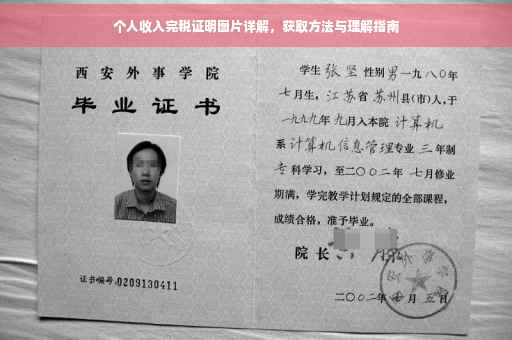 个人收入完税证明图片详解，获取方法与理解指南
西安外事学院
毕业证书
证书编号:0209130411
学生 张坚 性别 男 一九八〇年
七月生，江苏省 苏州县(市)人，于
一九九九年 九月入本院 计算机
系 计算机信息管理专业 三 年制
专 科学习，至二〇〇二年 七月修业
期满，学完教学计划规定的全部课程，
成绩合格，准予毕业。
院长
二〇〇二年 月 五日